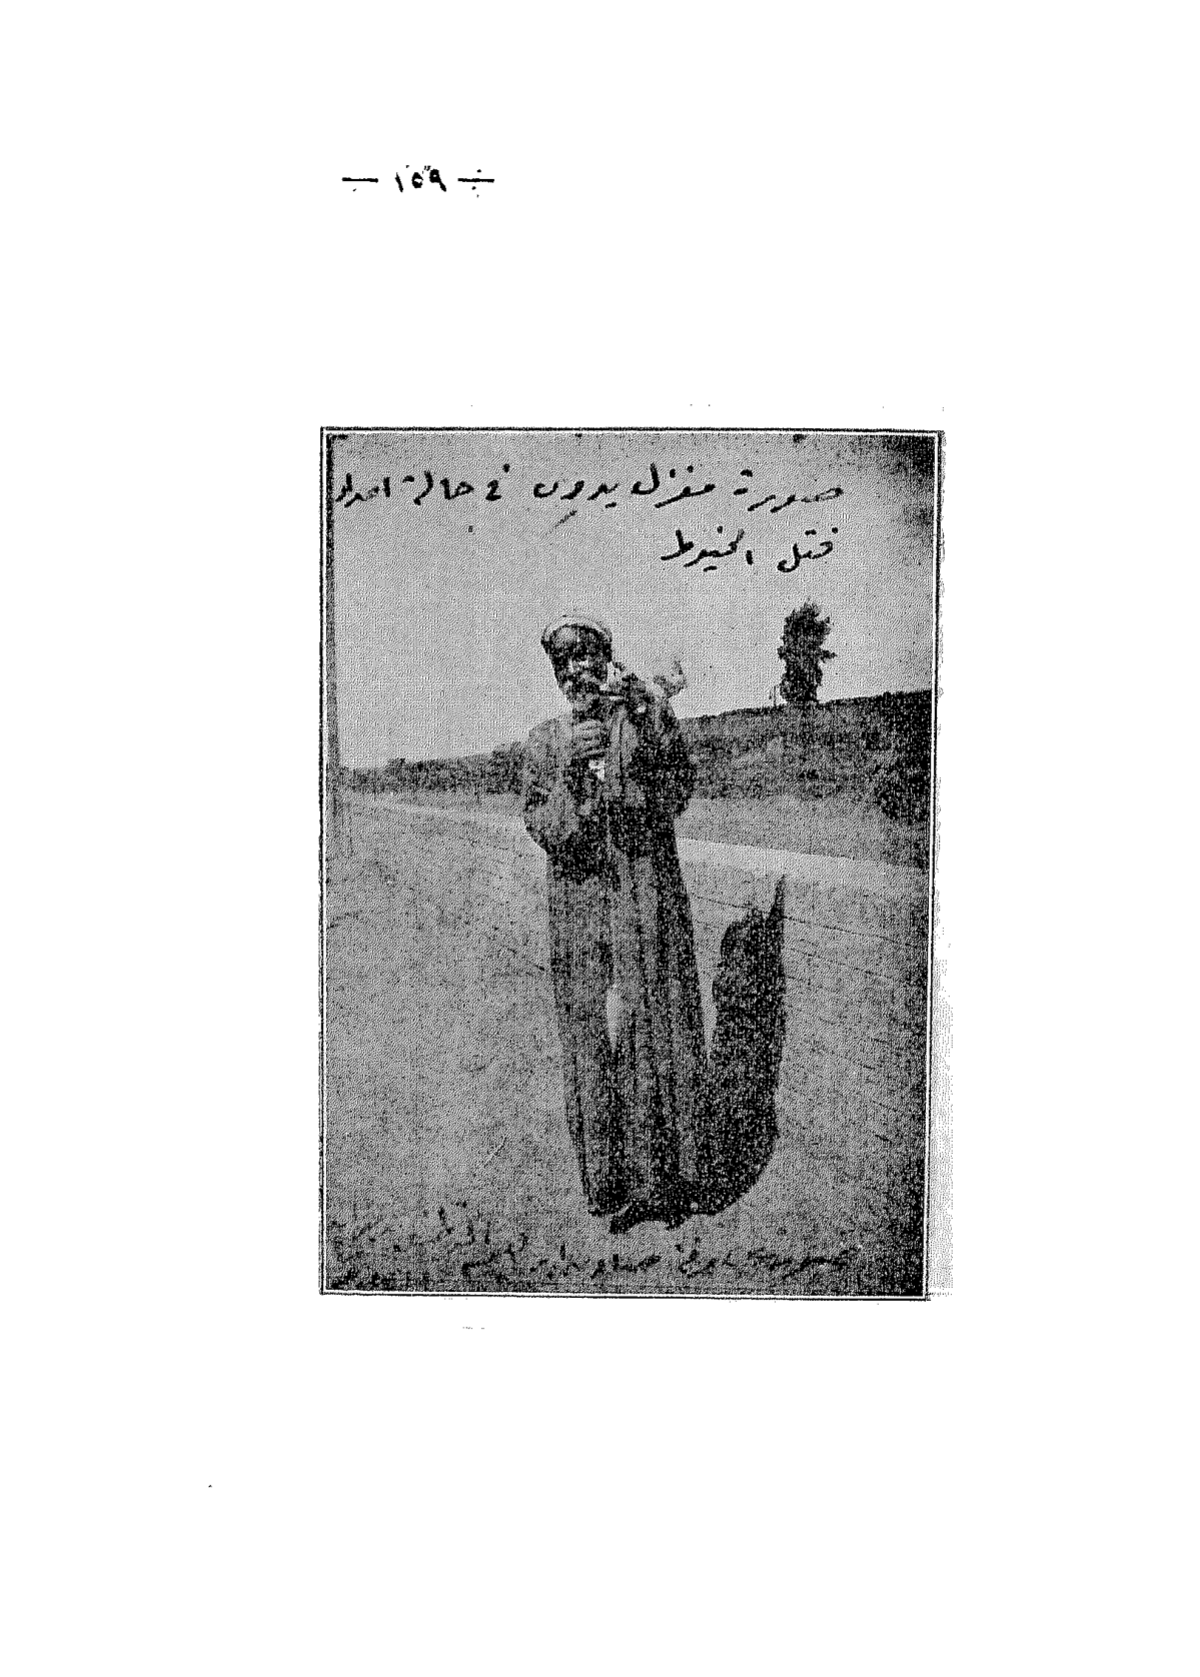 — ١٥٩ —
صورة مغزل يدوى فى حالة اعداد
فتل الخيوط
صورة